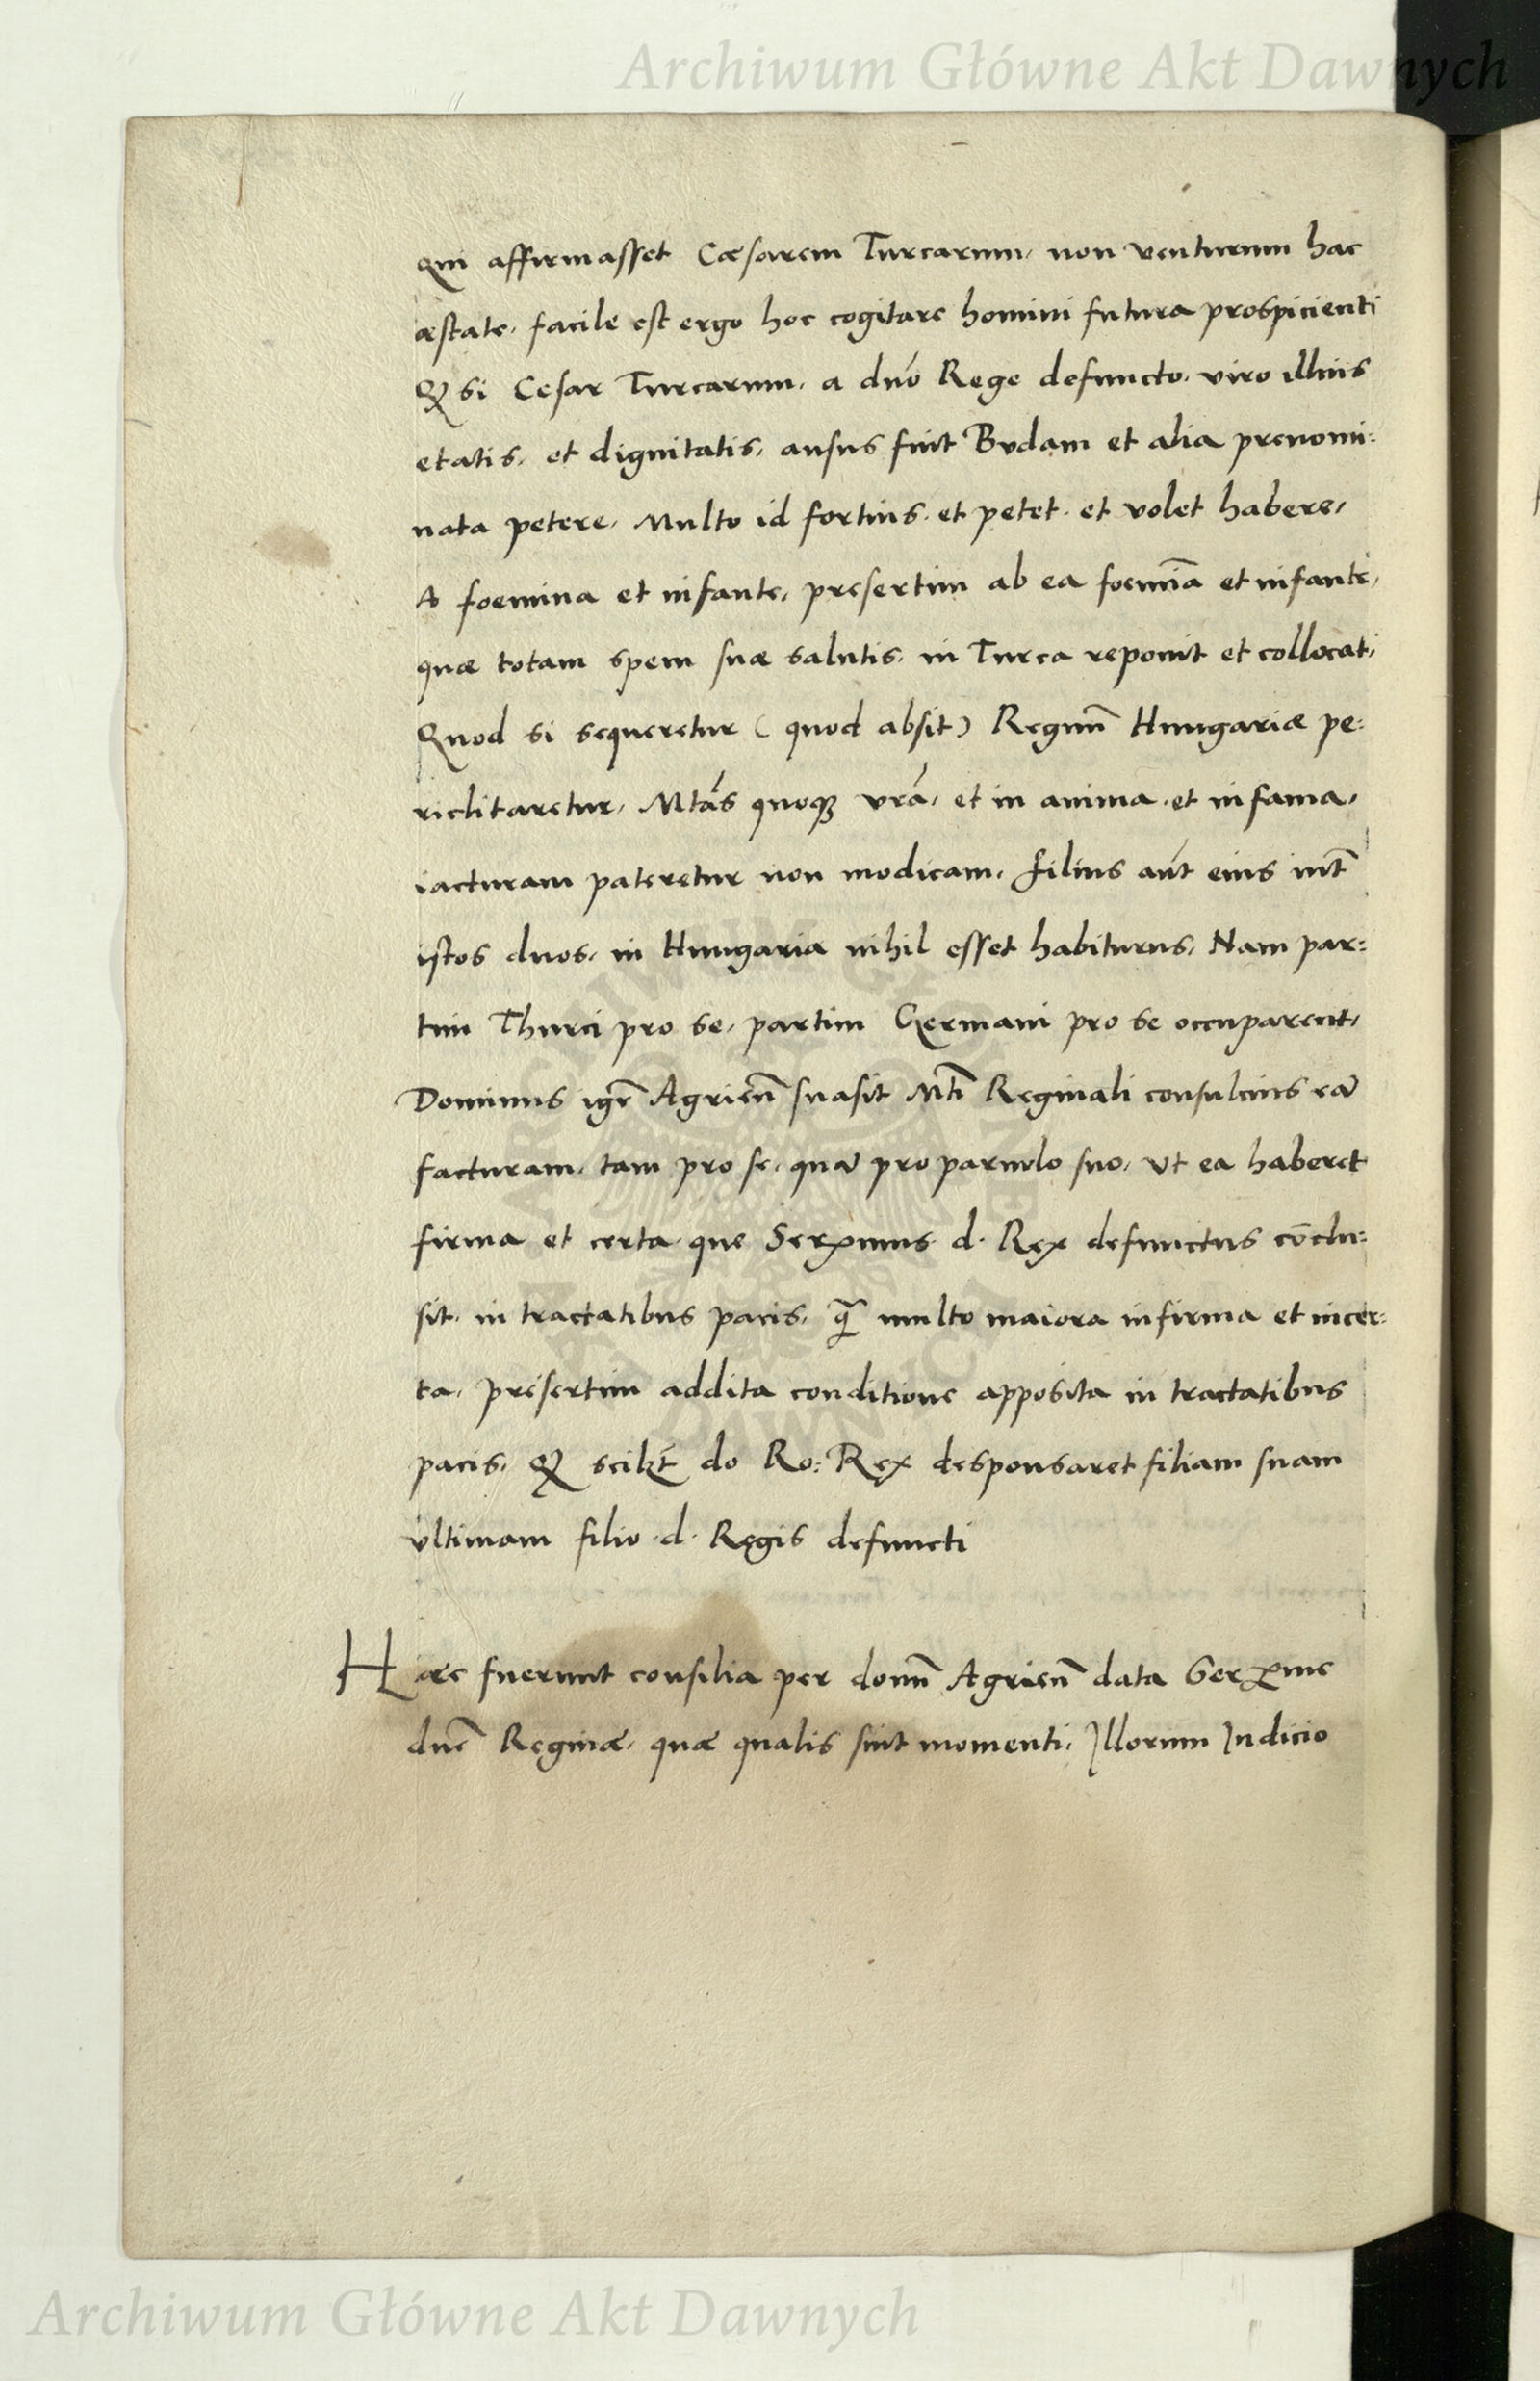 Archiwum Główne Akt Dawnych
Qui affirmasset Cæsarem Turcarum, non venturum hac
æstate, facile est ergo hoc cogitare homini futura prospicienti
Qꝫ si Cesar Turcarum, a dn̄o Rege defuncto, viro illius
etatis, et dignitatis, ausus fuit Budam et alia prenomi:
nata petere, Multo id fortius, et petet, et volet habere,
A foemina et infante, presertim ab ea foemīa et infante,
quæ totam spem suæ salutis, in Turca reponit et collocat,
Quod si sequeretur (quod absit) Regnū Hungariæ pe:
riclitaretur, Mtās quoqꝫ vrā, et in anima, et in fama,
iacturam pateretur non modicam, filius aūt eius int̄
istos duos, in Hungaria nihil esset habiturus, Nam par:
tim Thurci pro se, partim Germani pro se occuparent,
Dominus igr̄ Agrien̄ suasit Mtī Reginali consulcius eā
facturam, tam pro se, quā pro parvulo suo, ut ea haberet
firma et certa, que Serx̄mus d. Rex defunctus cōclu:
sit, in tractatibus pacis, q̄ multo maiora infirma et incer:
ta, presertim addita conditione apposita in tractatibus
pacis, Qꝫ scilꝫt do Ro: Rex desponsaret filiam suam
ultimam filio d. Regis defuncti
Haec fuerunt consilia per domn̄ Agrien̄ data Serx̄me
dn̄e Reginæ, quæ qualis sint momenti, Illorum Iudicio
ARCHIWUM GŁÓWNE AKT DAWNYCH
Archiwum Główne Akt Dawnych